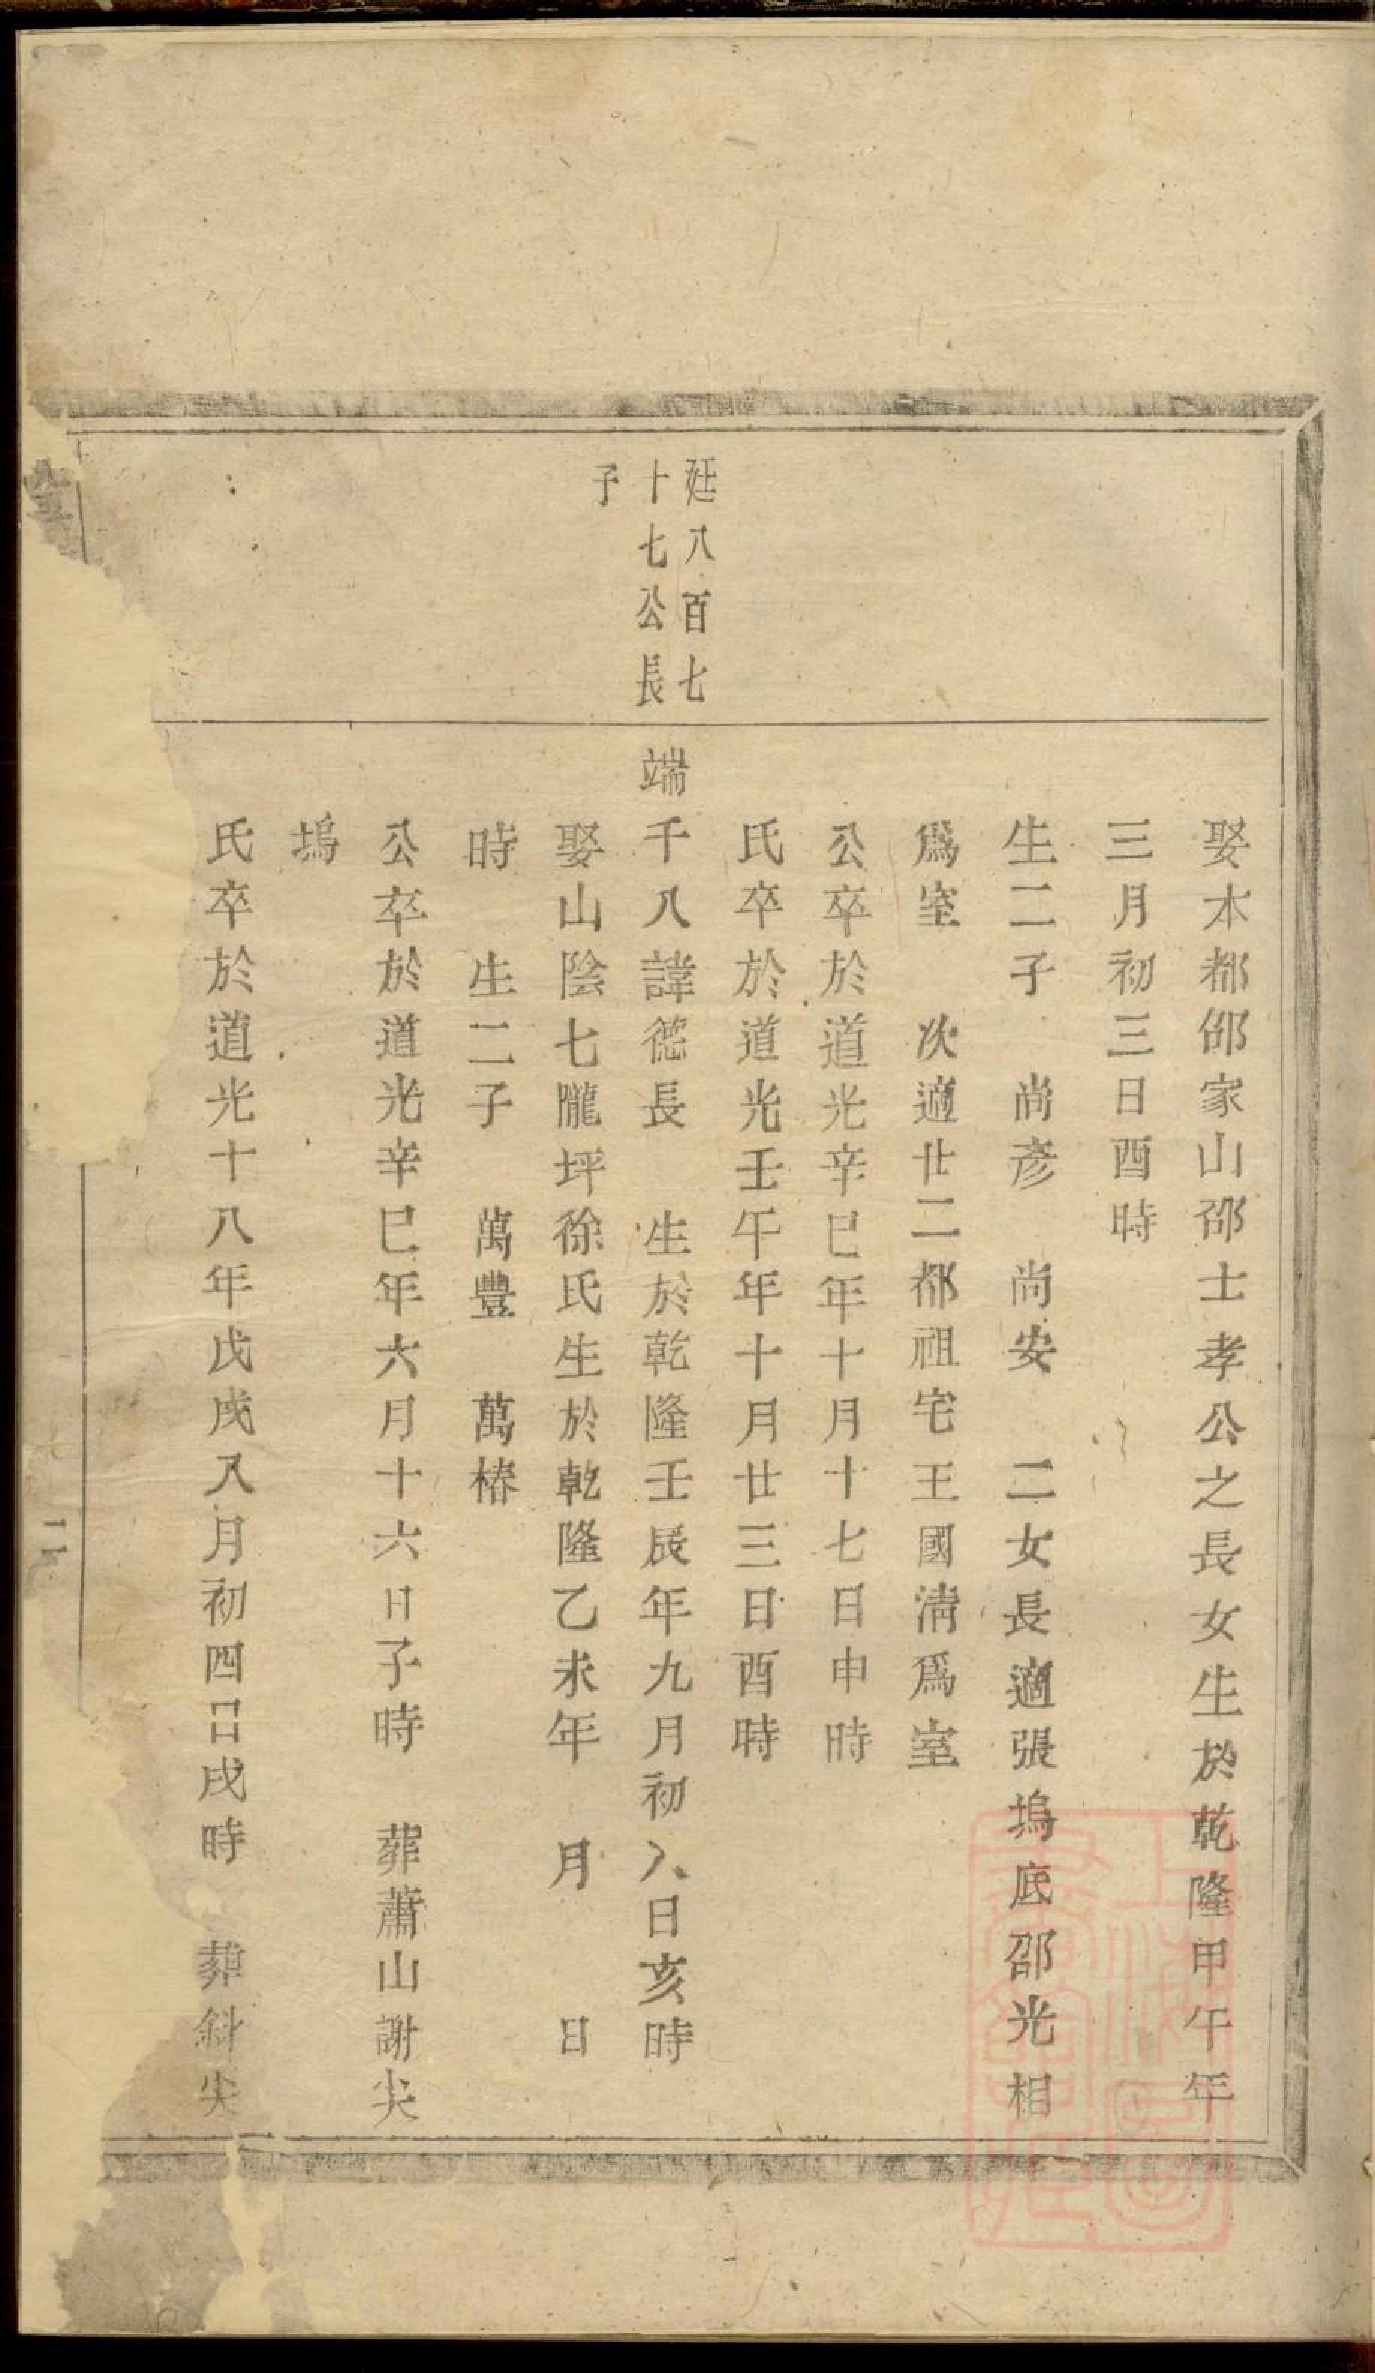 娶木都邵家山邵士孝公之長女生於乾隆甲午年
三月初三日酉時
生二子 尚彥 尚安 二女長適張塢底邵光相
爲室 次適廿二都祖宅王國淸爲室
公卒於道光辛巳年十月十七日申時
氏卒於道光壬午年十月廿三日酉時
廷八百七
十七公長
子
端千八諱德長 生於乾隆壬辰年九月初八日亥時
娶山陰七隴坪徐氏生於乾隆乙未年 月 日
時 生二子 萬豐 萬椿
公卒於道光辛巳年六月十六日子時 葬蕭山謝尖
塢
氏卒於道光十八年戊戌八月初四日戌時 葬斜尖
二
上海圖
書館藏